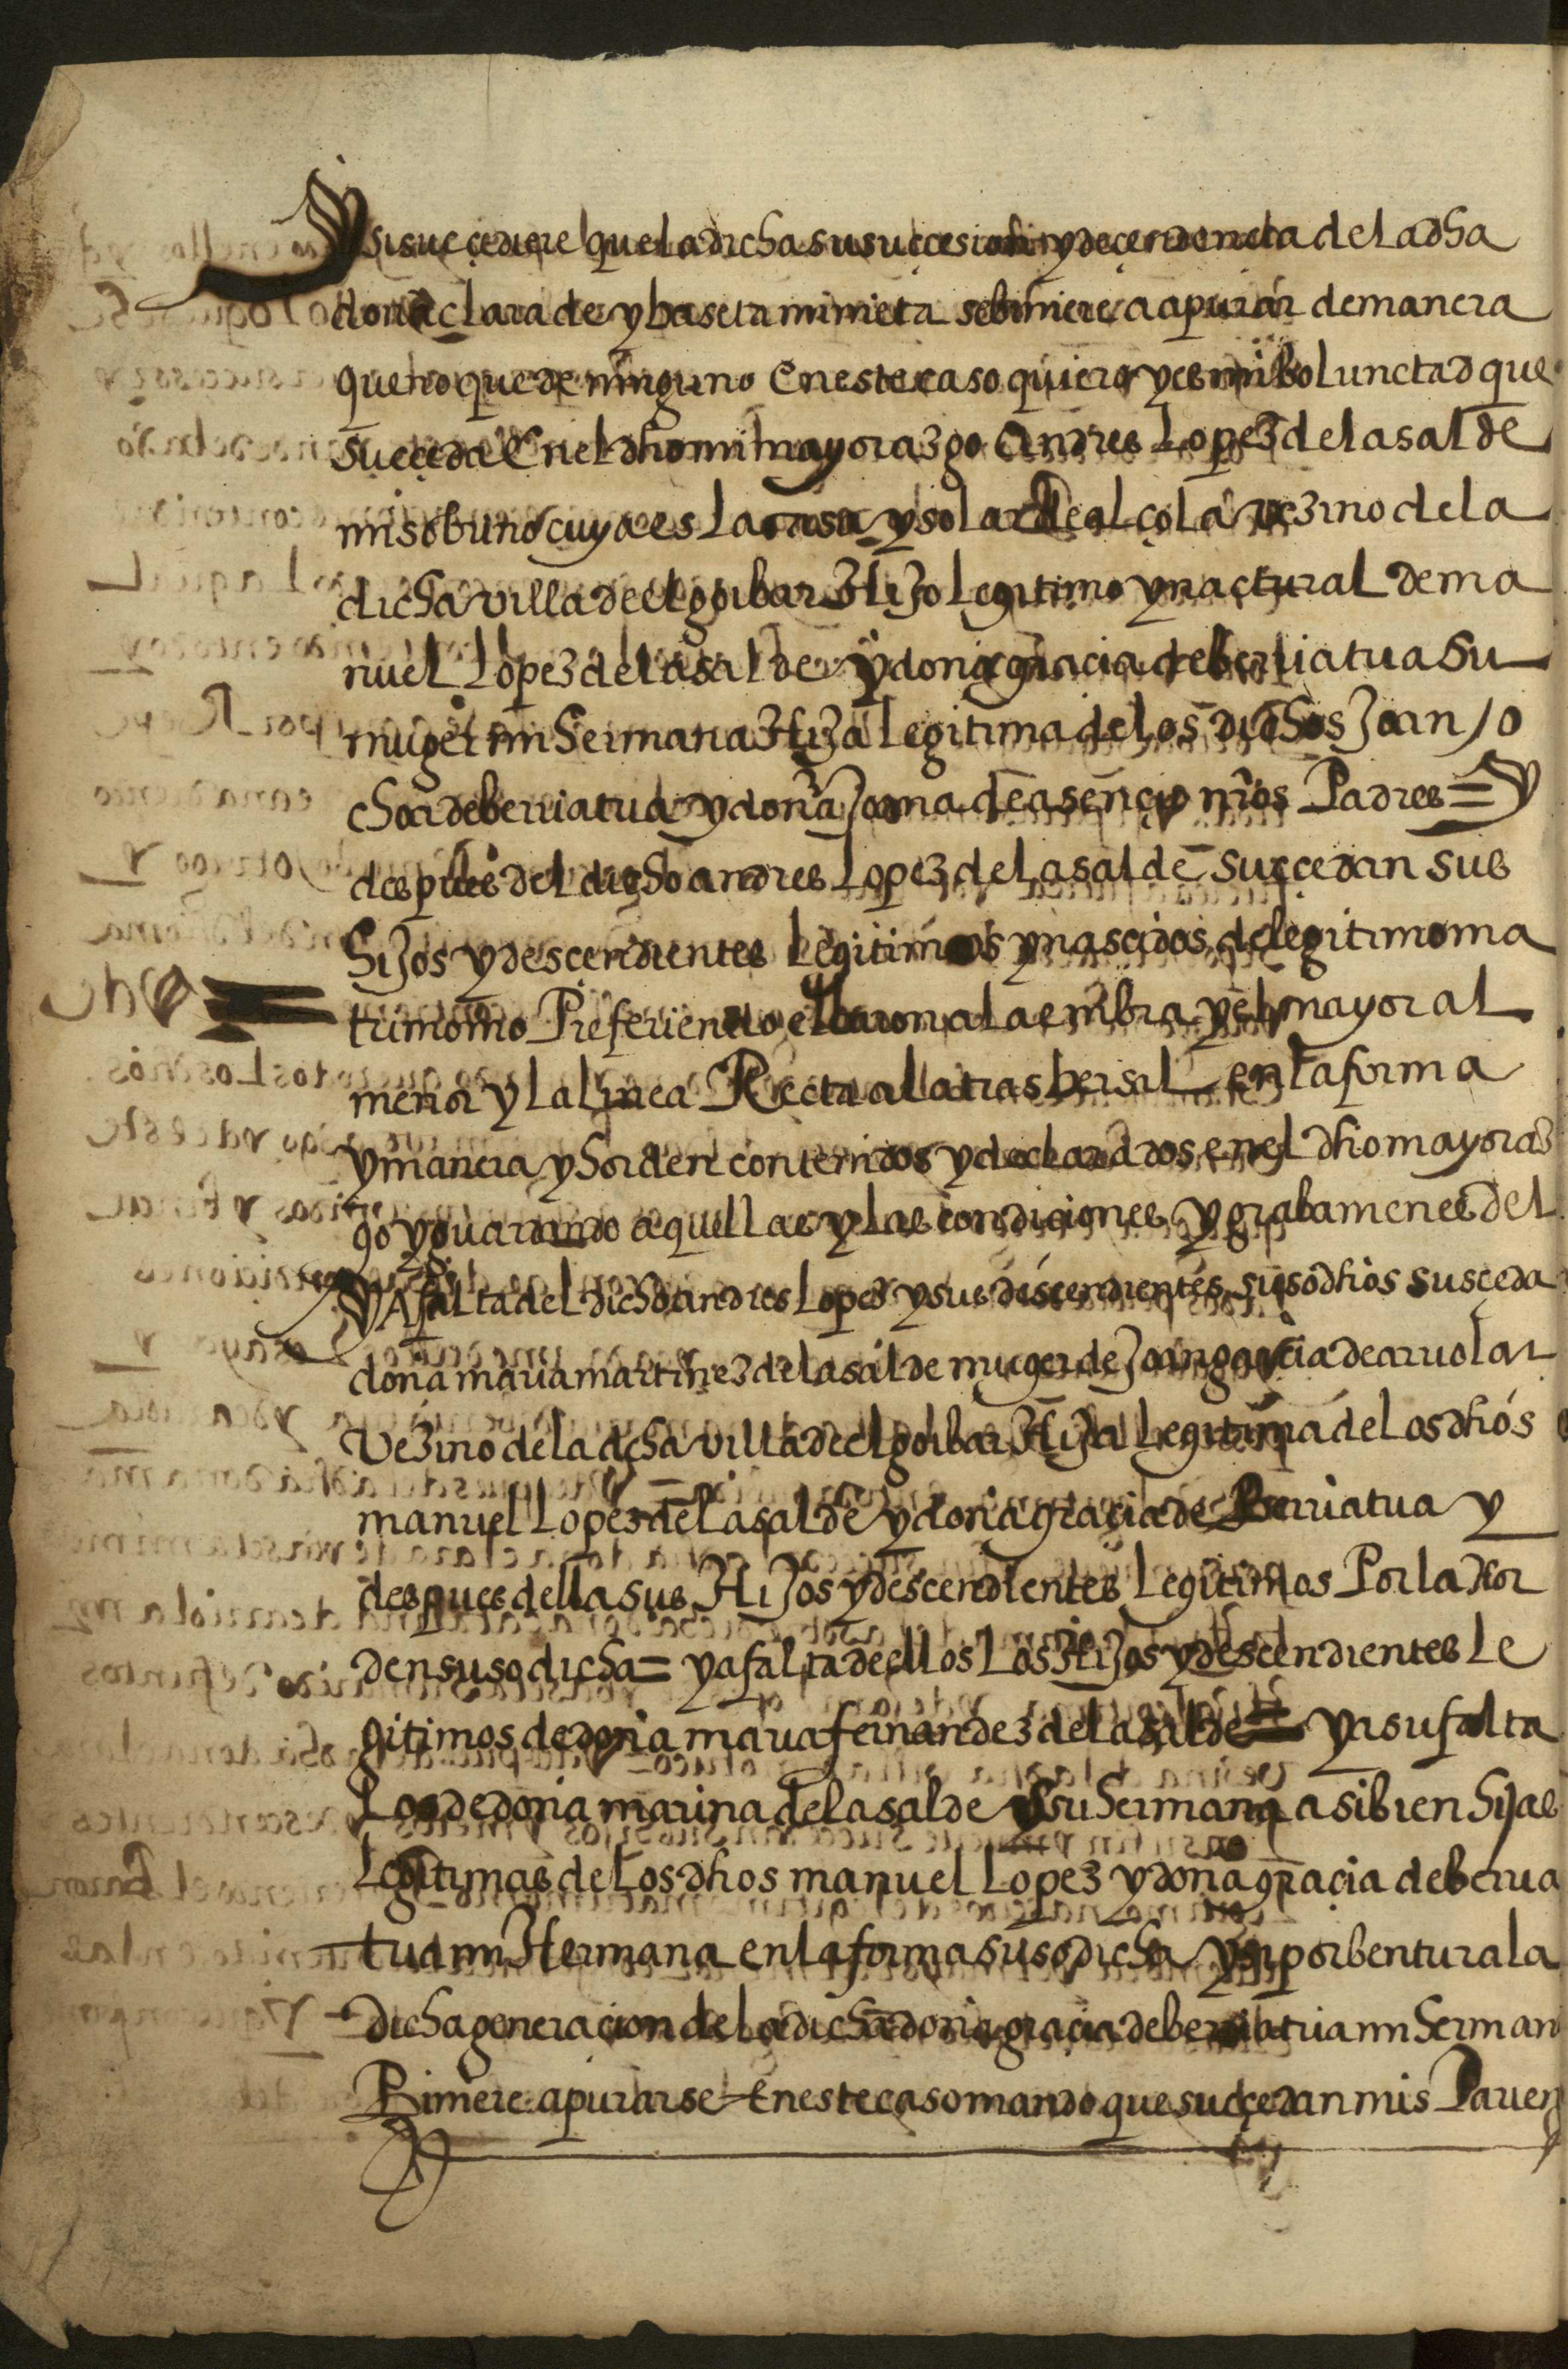 Y si sucçediere que la dicha su sucçesion y deçendencia de la dha
doña clara de ybaseta mi nieta se biniere a apurar de manera
que no quede ninguno En este caso quiero y es mi boluntad que
suçeda En el dho mi mayorazgo Andres Lopez de la salde
mi sobrino cuya es La casa y solar de alçola vezino de la
dicha villa de elgoibar Hijo Legitimo y natural de ma
nuel Lopez de la salde y doña graçia de berriatua su
muger mi hermana Hija Legitima de los dichos Joan /o
choa de berriatua y doña Joana de asençio nros Padres = Y
despues del dicho andres Lopez de la salde sucçedan sus
hijos y desçendientes Legitimos y nascidos de legitimo ma
trimonio Prefiriendo el baron a la embra y el mayor al
menor y la linea Recta a la trasbersal en la forma
y manera y horden contenidos y declarados en el dho mayoraz
go y guardando aquellas y las condiciones y grabamenes del
Y A falta del dicho andres Lopez y sus desçendientes susodhos susçeda
doña maria martinez de la salde muger de Joan garcia de arriola
Vezino de la dcha villa de elgoibar Hija Legitima de Los dhos
manuel Lopez de la salde y doña graçia de Berriatua y
despues della sus Hijos y descendientes Legitimos Por la hor
den susodicha = y a falta de ellos Los Hijos y descendientes Le
gitimos de doña maria fernandez de la salde = y a su falta
Los de doña marina de la salde su hermana asi bien hijas
Legitimas de Los dhos manuel Lopez y doña graçia de berria
tua mi Hermana en la forma susodicha y si por bentura la
dicha generaçion de la dicha doña graçia de berriatua mi herman
Biniere apurarse En este caso mando que sucçedan mis Parien